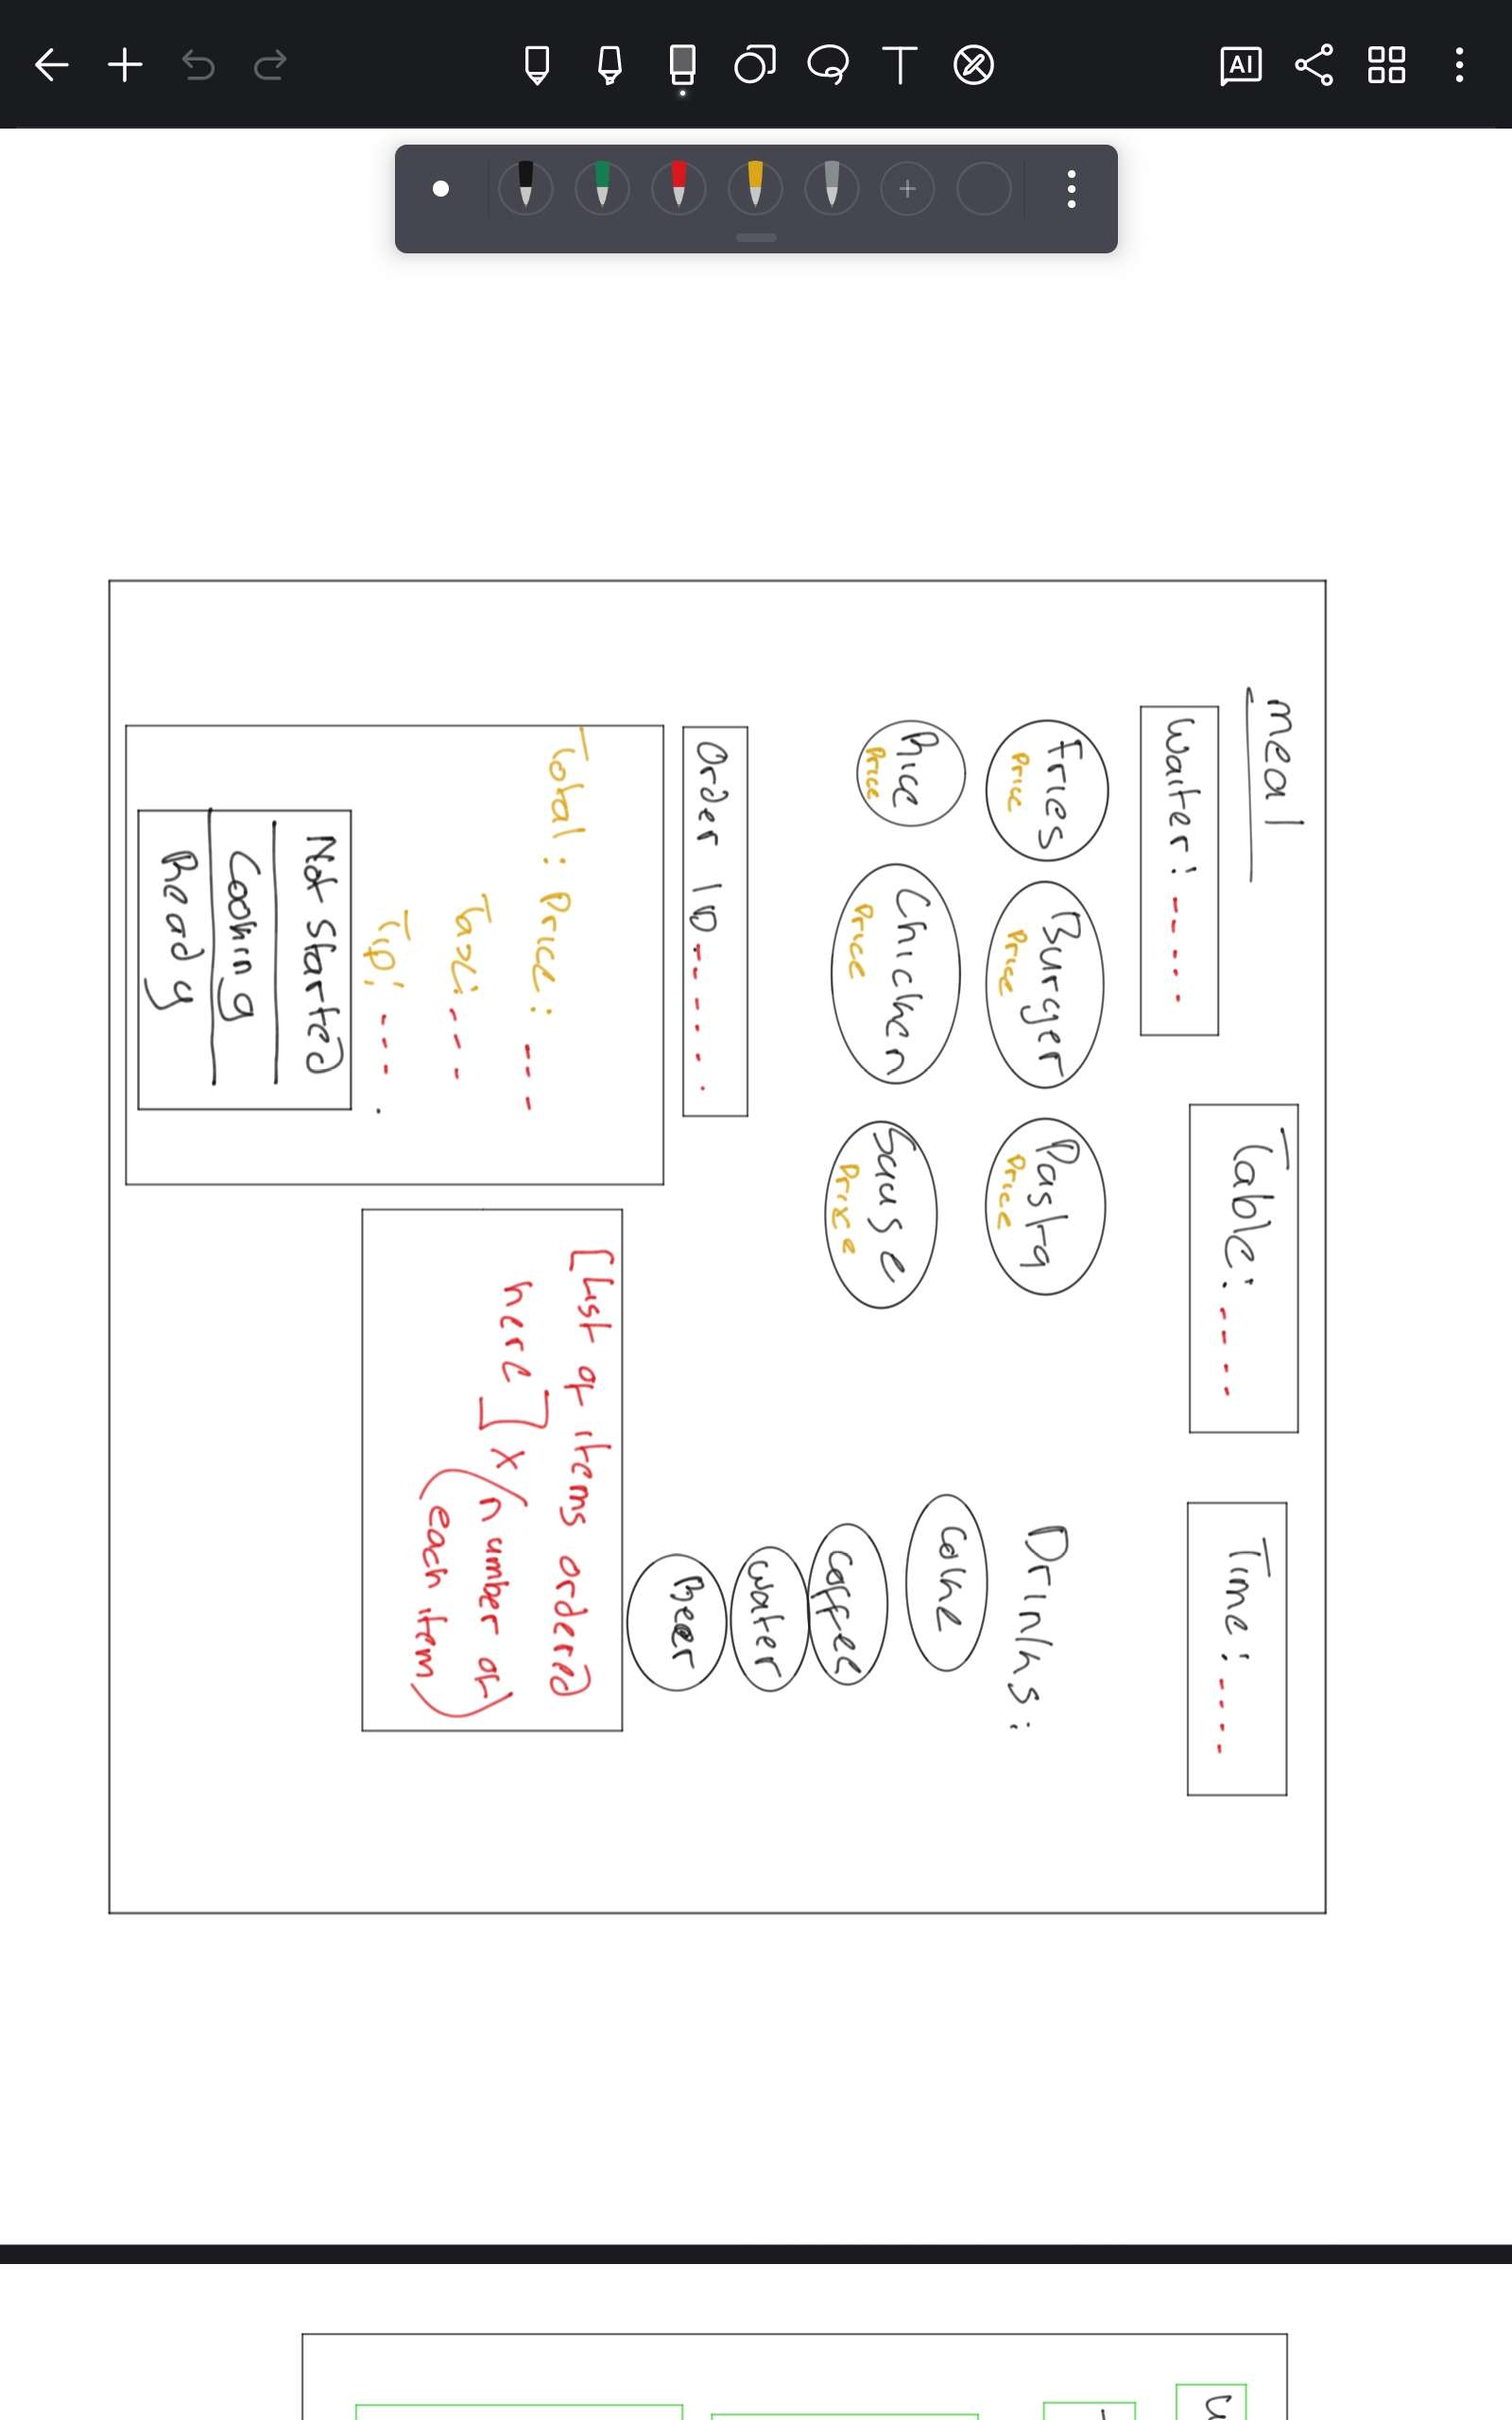 AI
T
meal
Table: -----
Time: ----
Waiter: -----
Fries
Price
Burger
Price
Pasta
Price
Drinks:
Rice
Price
Chicken
Price
Sause
Price
Coke
Coffee
Water
Beer
Order ID ------
Total: Price: ---
Tax: ---
Tip: ---
Not Started
Cooking
Ready
[List of items ordered
here] x (number of
each item)